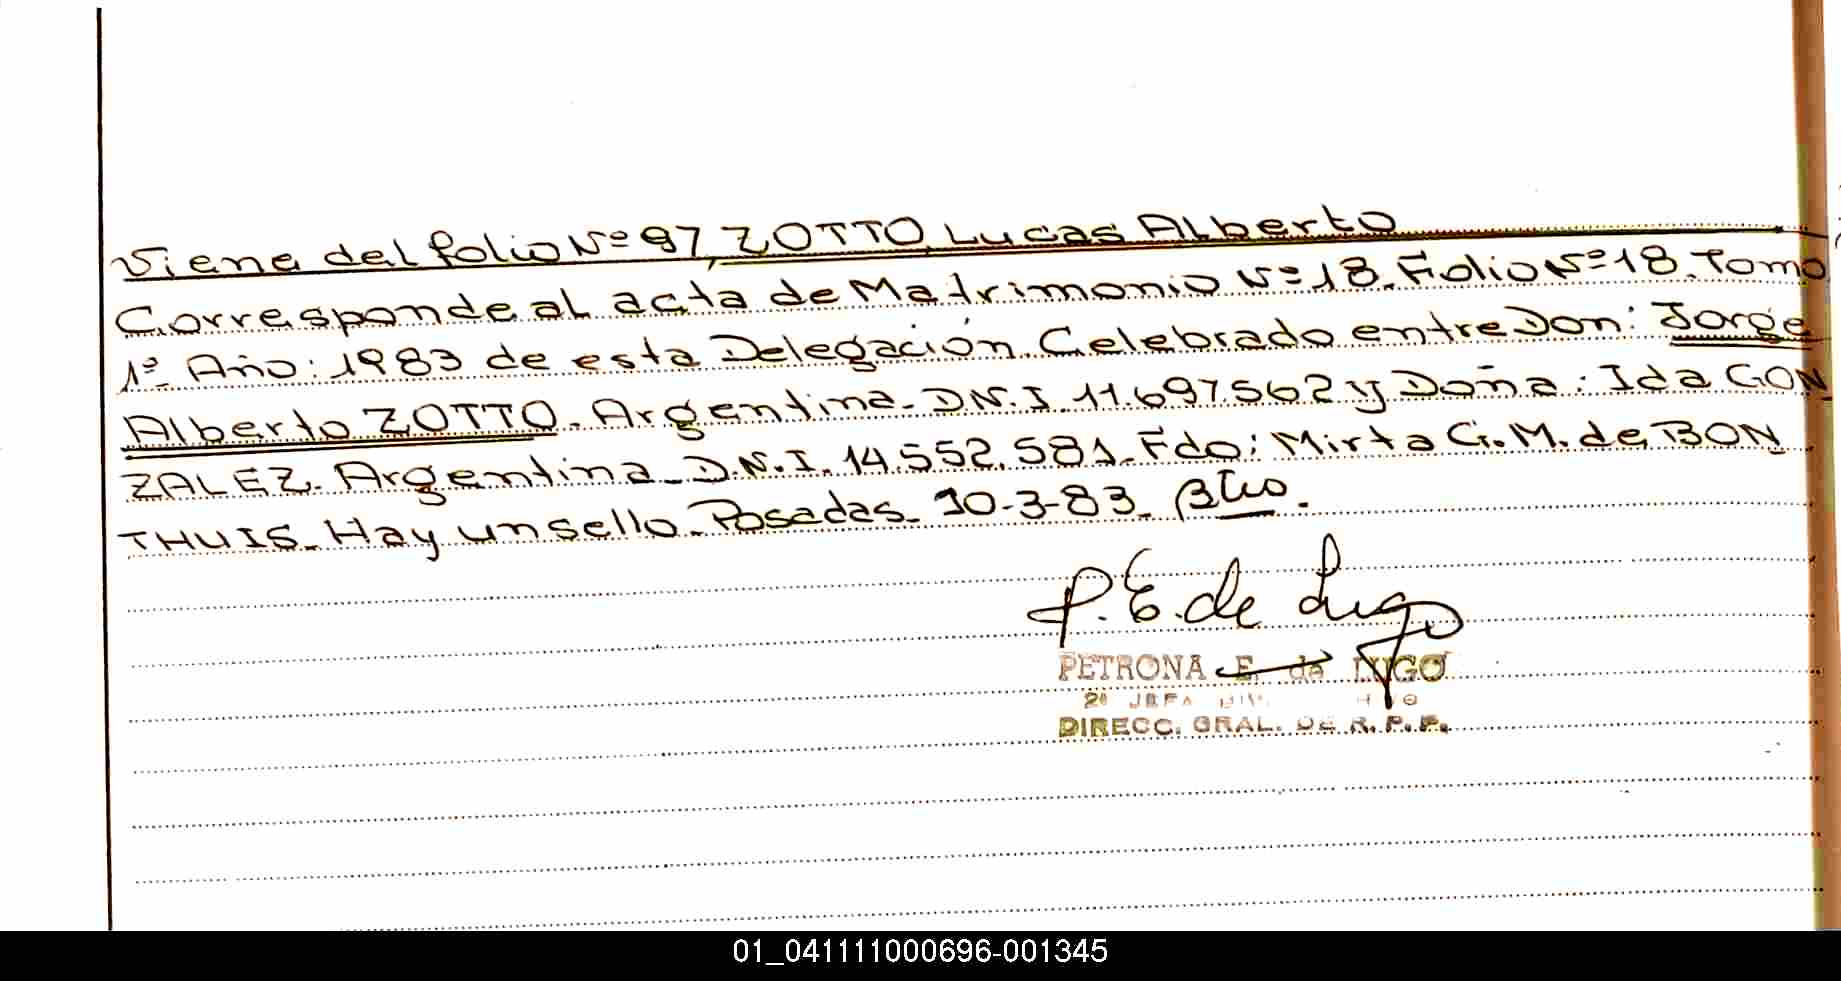 Viene del folio Nº 97, ZOTTO, Lucas Alberto
Corresponde al acta de Matrimonio Nº 18. Folio Nº 18. Tomo
1º Año: 1983 de esta Delegación. Celebrado entre Don: Jorge
Alberto ZOTTO. Argentina. D.N.I. 11.697.562 y Doña: Ida GON
ZALEZ. Argentina. D.N.I. 14.552.581. Fdo: Mirta G. M. de BON
THUIS. Hay un sello. Posadas. 10-3-83.
P. E. de Lugo
PETRONA E. de LUGO
2º JEFA DIV.
DIRECC. GRAL. DE R. P. P.
01_041111000696-001345